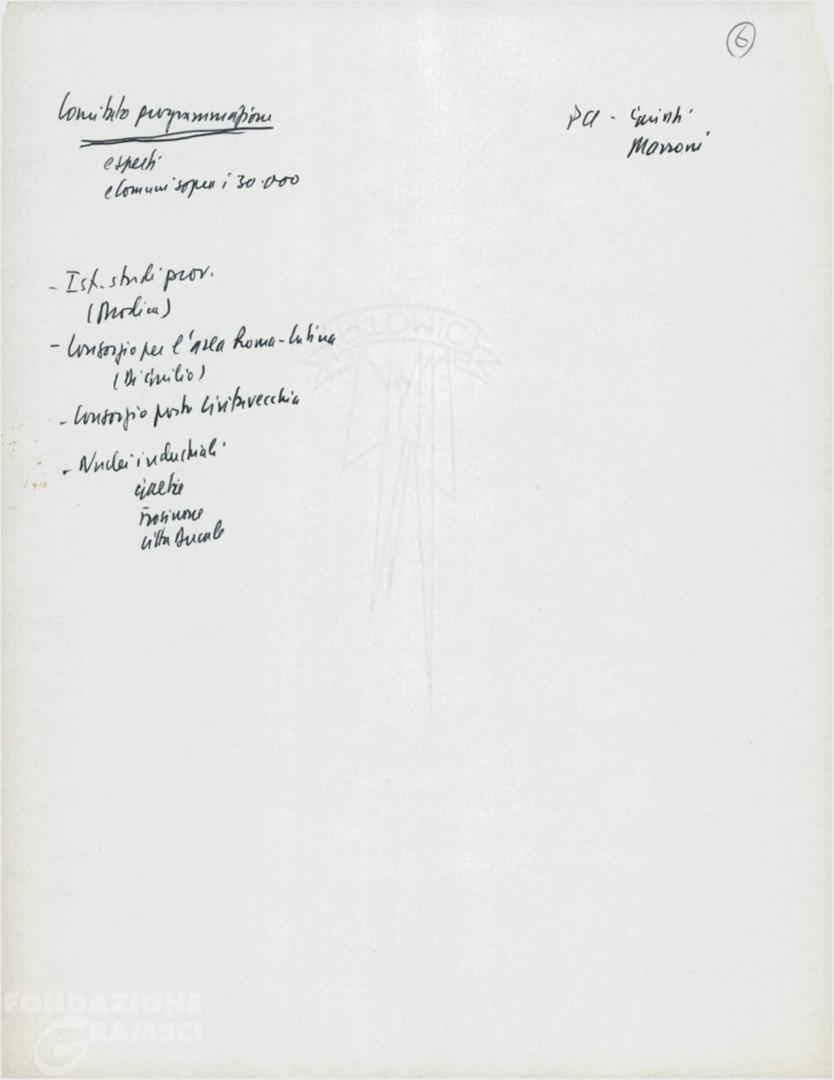 6
Comitato programmazione
esperti
e Comuni sopra i 30.000
PCI - Giunti
Marroni
- Ist. studi prov.
(Modica)
- Consorzio per l'area Roma-Latina
(Di Giulio)
- Consorzio porto Civitavecchia
- Nuclei industriali
Gaeta
Frosinone
Cittaducale
FONDAZIONE
GRAMSCI